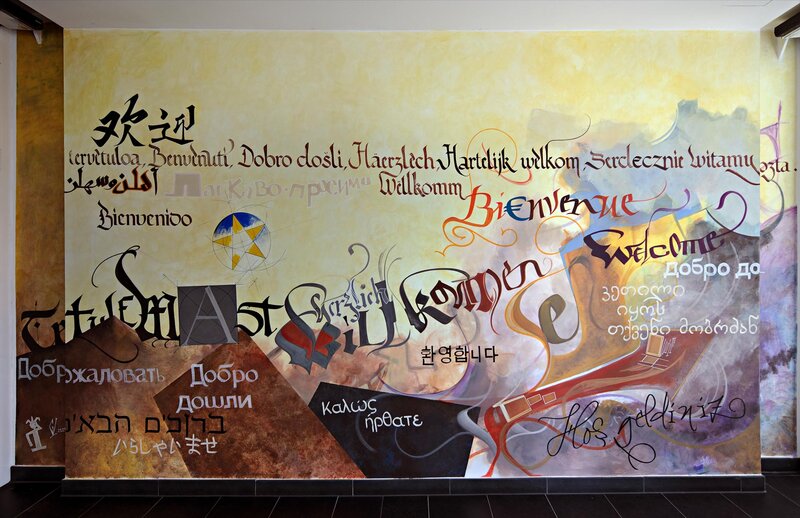 欢迎
Tervetuloa, Benvenuti, Dobro došli, Haerzlech Hartelijk welkom Serdecznie witamy
أهلاً وسهلاً Ласкаво просимо Wëllkomm
Bienvenido
Bienvenue
Welcome
Добро до
კეთილი
იყოს
თქვენი მობრძან
Herzlich
Willkommen
환영합니다
Добро
дошли
ברוכים הבאים
いらしゃいませ
Καλώς
ήρθατε
Hoş geldiniz